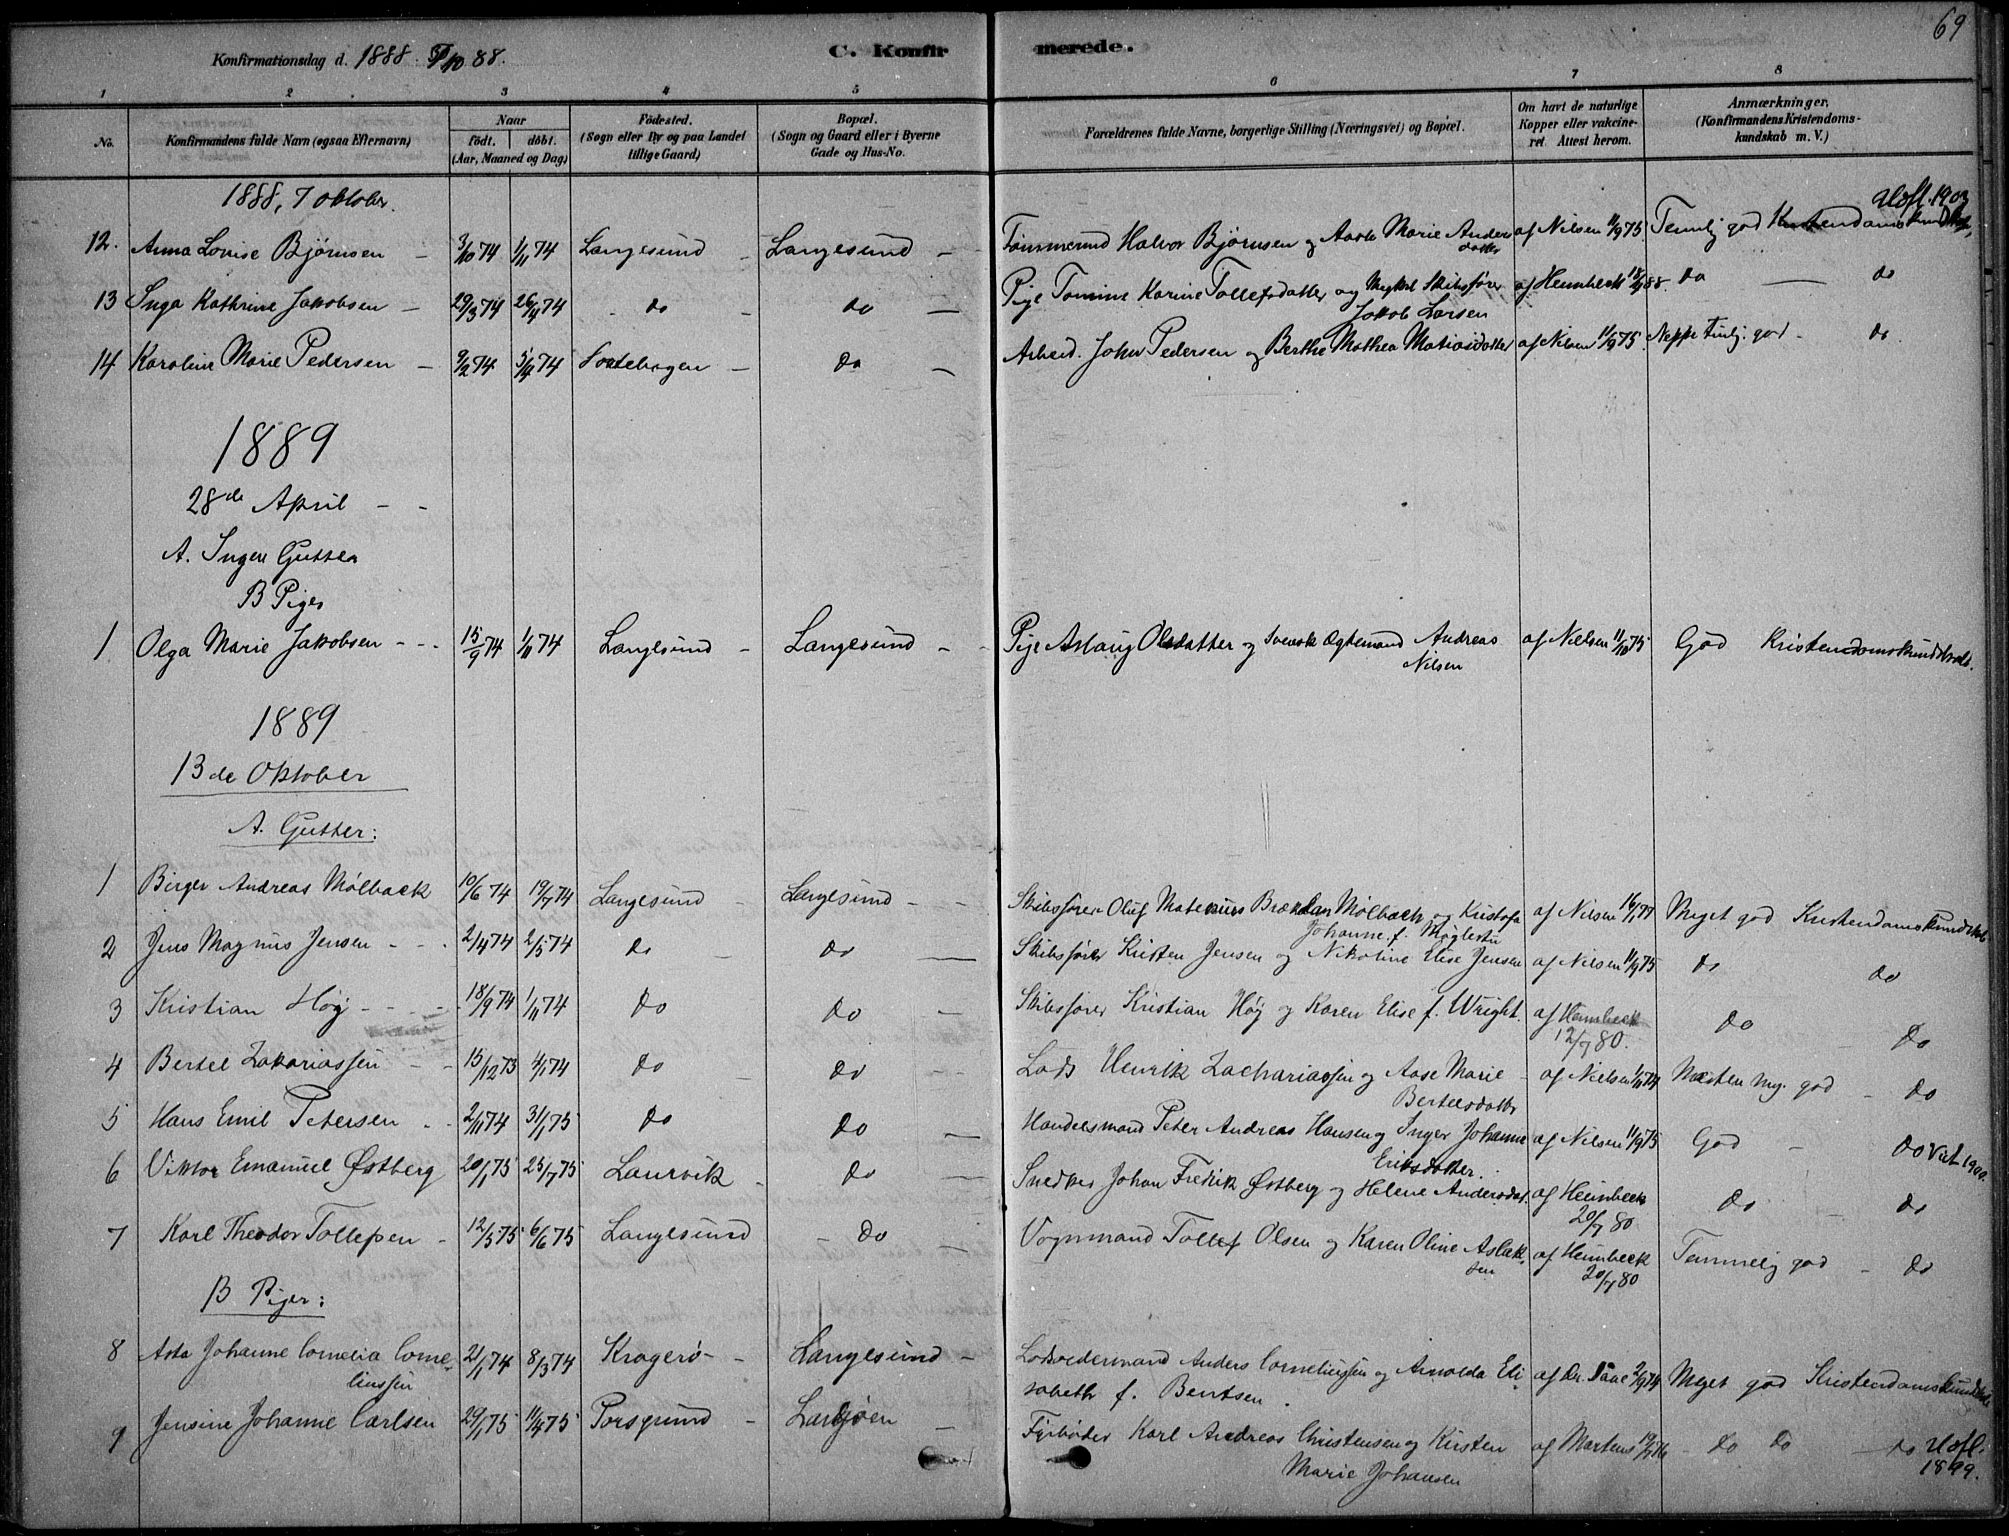 69
Konfirmationsdag d. 1888. 7/10 88.
C. Konfirmerede.
1 2 3 4 5 6 7 8
No. Konfirmandens fulde Navn (ogsaa Efternavn) Naar født. døbt. (Aar, Maaned og Dag) Fødested. (Sogn eller By og paa Landet tillige Gaard) Bopæl. (Sogn og Gaard eller i Byerne Gade og Hus-No. Forældrenes fulde Navne, borgerlige Stilling (Næringsvei) og Bopæl. Om havt de naturlige Kopper eller vakcineret Attest herom. Anmærkninger, (Konfirmandens Kristendomskundskab m. V.)
1888, 7 oktober. Udfl. 1903
12. Anna Lovise Bjørnsen 3/10 74 1/11 74 Langesund Langesund Tømmermd Halvor Bjørnsen og Aasle Marie Andersdatter af Nilsen 11/9 75 Temlig god Kristendomskundskab
13 Inga Kathrine Jakobsen 29/3 74 26/4 74 do do Pige Tomine Karine Tollefsdatter og Skibsfører Jakob Larsen af Heimbeck 88. do do
14 Karoline Marie Pedersen 9/2 74 5/4 74 do Arbeid. John Pedersen og Berthe Mathea Matiasdatter af Nilsen 11/9 75 Neppe tmlig. god do
1889
28de April
A. Ingen Gutter
B Piger
1 Olga Marie Jakobsen 15/9 74 1/11 74 Langesund Langesund Pige Aslaug Olsdatter og Svensk Ægtemand Andreas Nilsen af Nielsen 11/10 75 God Kristendomskundskab.
1889
13de Oktober
A. Gutter:
1 Birger Andreas Mølback 10/6 74 19/7 74 Langesund Langesund Skibsfører Oluf Mølback og Kristofa Johanne f. Møglestu af Nilsen 16/1 77 Meget god Kristendomskundskab
2 Jens Magnus Jensen 2/4 74 2/5 74 do do Skibsfører Kristen Jensen og Nikoline Elise Jensen af Nilsen 11/9 75 do do
3 Kristian Høy 18/9 74 1/11 74 do do Skibsfører Kristian Høy og Karen Elise f. Wright. af Heimbeck 12/7 80. do do
4 Bertel Zakariassen 15/12 73 4/1 74 do do Lods Henrik Zachariassen og Aase Marie Bertelsdatter af Nielsen 1/11 74 Næsten mg. god do
5 Hans Emil Petersen 2/11 74 31/1 75 do do Handelsmand Peter Andreas Hansen og Inger Johanne Eriksdatter. af Nilsen 11/9 75 God do Vat 1900.
6 Viktor Emanuel Østberg 20/1 75 25/7 75 Laurvik do Snedker Johan Fredrik Østberg og Helene Andersdat. af Heimbeck 20/7 80 do do
7 Karl Theodor Tollefsen 12/5 75 6/6 75 Langesund do Vognmand Tollef Olsen og Karen Oline Aslaksen af Heimbeck 20/7 80 Temmelig god do
B Piger:
8 Asta Johanne Cornelia Corneliussen 21/1 74 8/3 74 Kragerø Langesund Lodsoldermand Anders Corneliussen og Arnolda Elisabeth f. Bentsen. af Dr. Paae 2/9 74 Meget god Kristendomskundskab
9 Jensine Johanne Carlsen 29/1 75 11/4 75 Porsgrund Fyrbøder Karl Andreas Christensen og Kirsten Marie Johansen af Martens 19/7 76 do do do Udfl. 1899.